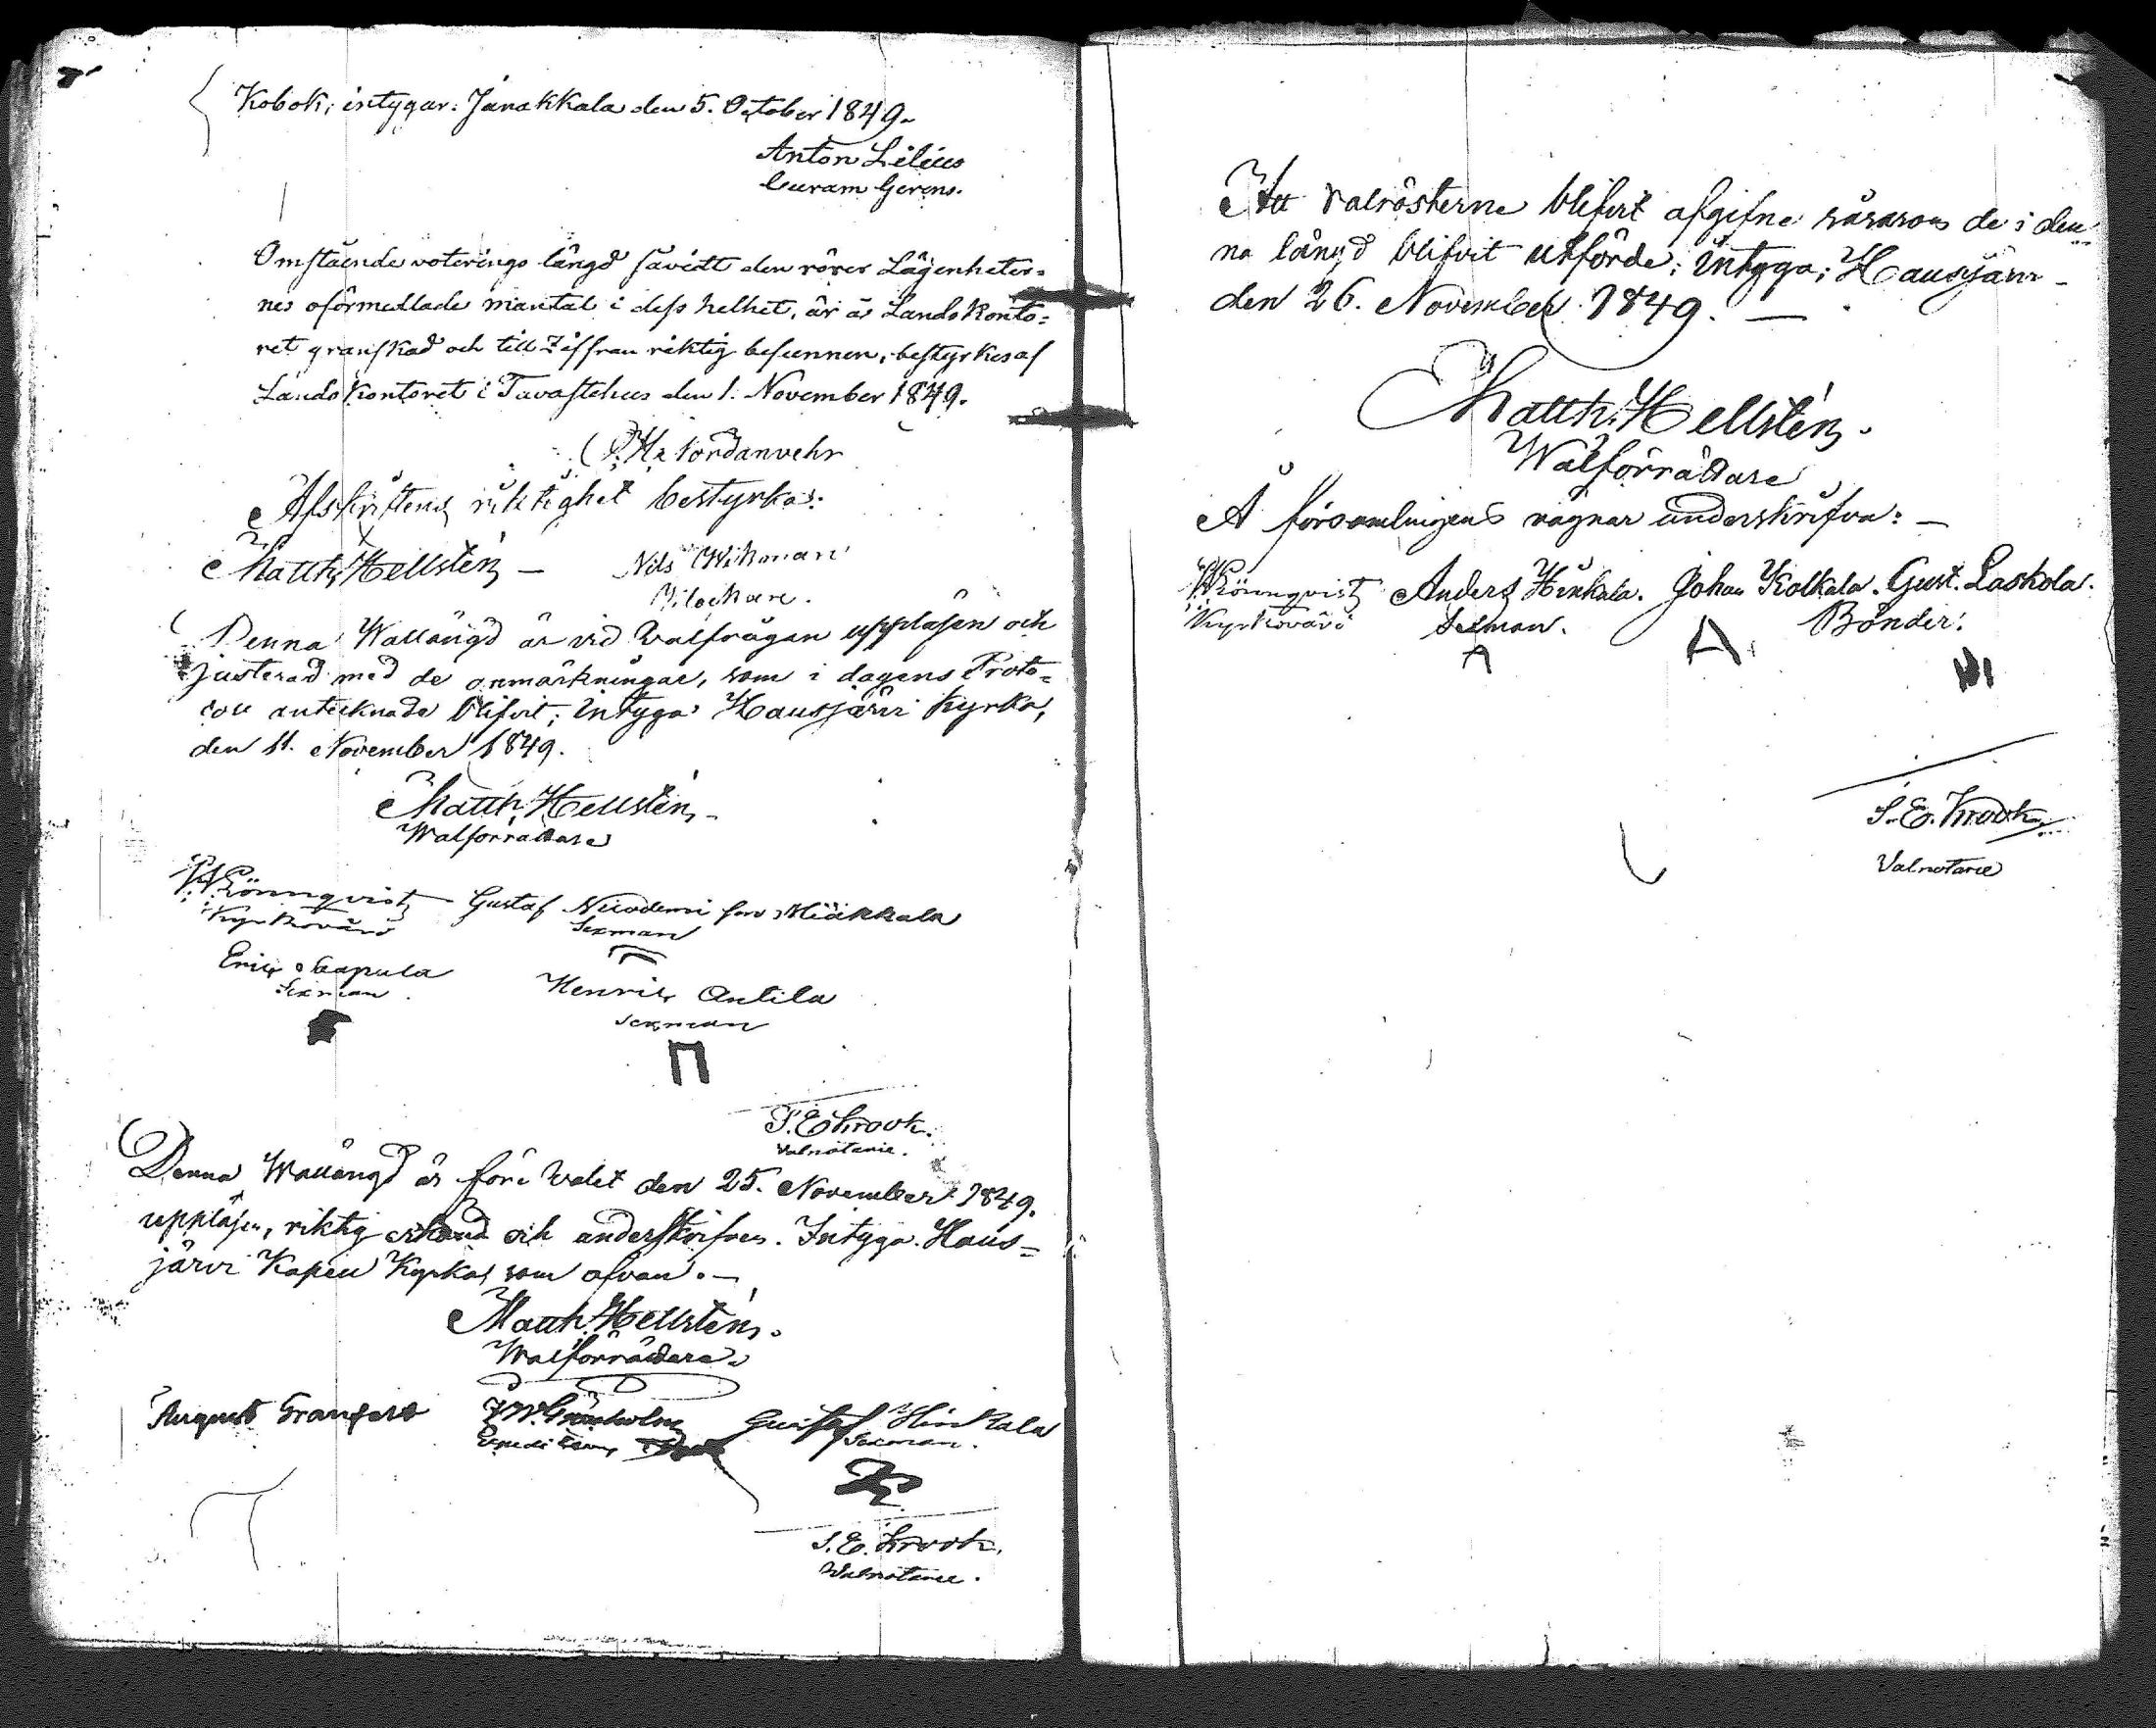 Kobok; intygar: Janakkala den 5. October 1849.
Anton Lilius
Curam Gerens.
Omstående voterings längd såvidt den rörer Lägenheter=
nes oförmedlade mantal i dess helhet, är å Landskonto=
ret granskad och till Ziffran riktig befunnen, bestyrkes af
Landskontoret i Tavastehus den 1. November 1849.
Nordanvehr
Afskriftens riktighet bestyrka:
Matth. Hellstén
Nils Wikman
Denna Wallängd är vid Valfrågan uppläsen och
justerad med de anmärkningar, som i dagens Proto=
coll antecknade blifvit; intyga Hausjärvi Kyrka,
den 11. November 1849.
Matth. Hellstén
Walförrättare
Rönnqvist Gustaf Nicodemi son Hiäkkala
Kyrkovärd Sexman
Eric Sexman
Henric Antila
Sexman
S. E. Krook.
Valnotarie.
Denna Wallängd är före valet den 25. November 1849.
uppläsen, riktig erkänd och underskrifven. Intyga. Haus=
järvi Kapell Kyrka, som ofvan. —
Matth. Hellstén.
Walförrättare.
August Granfelt Gustaf Hinkala
Sexman.
S. E. Krook.
Valnotarie.
Att valrösterne blifvit afgifne såsom de i den=
na längd blifvit utförde; intyga; Hausjärvi
den 26. November 1849. —
Matth. Hellstén.
Walförrättare
Å församlingens vägnar underskrifva: —
Rönnqvist Anders Hinkala. Johan Kolkala. Gust. Laskola.
Kyrkovärd Sexman. Bönder.
S. E. Krook
Valnotarie